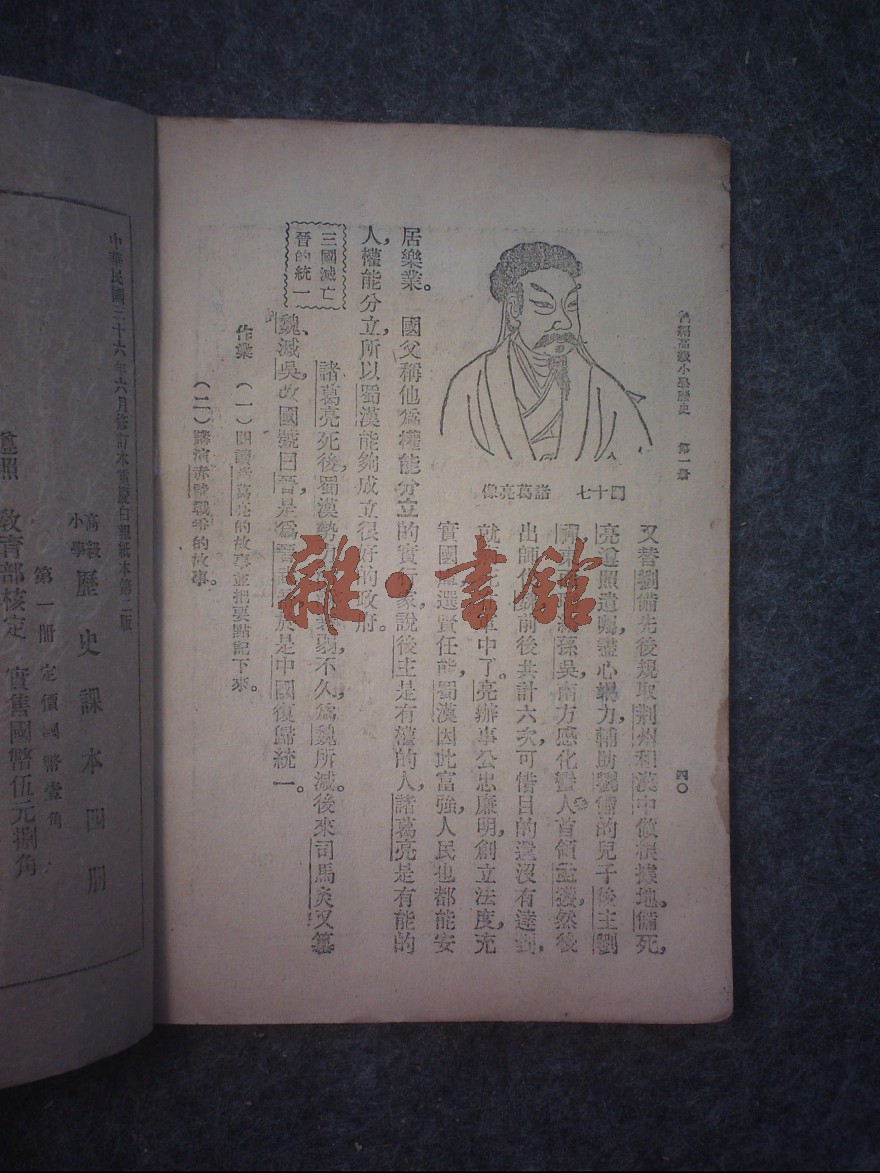 高級小學歷史 第一册
四〇
圖十七 諸葛亮像
又替劉備先後規取荆州和漢中做根據地。備死，
亮遵照遺囑，盡心竭力，輔助劉備的兒子後主劉
禪東 孫吳，南方感化蠻人首領孟獲，然後
出師 前後共計六次，可惜目的還沒有達到，
就 軍中了。亮辦事公忠廉明，創立法度，充
實國 選賢任能，蜀漢因此富強，人民也都能安
居樂業。國父稱他爲權能分立的實行家，說後主是有權的人，諸葛亮是有能的
人，權能分立，所以蜀漢能夠成立很好的政府。
三國滅亡
晉的統一
諸葛亮死後，蜀漢勢 衰弱，不久，爲魏所滅。後來司馬炎又篡
魏、滅吳，改國號曰晉，是爲晉 於是中國復歸統一。
作業 （一）閱讀諸葛亮的故事並把要點記下來。
（二）講演赤壁戰爭的故事。
雜·書館
中華民國三十六年六月修訂本重慶白報紙本第二版
高級
小學
歷史課本四册
第一册 定價國幣壹角
實售國幣伍元捌角
遵照 教育部核定